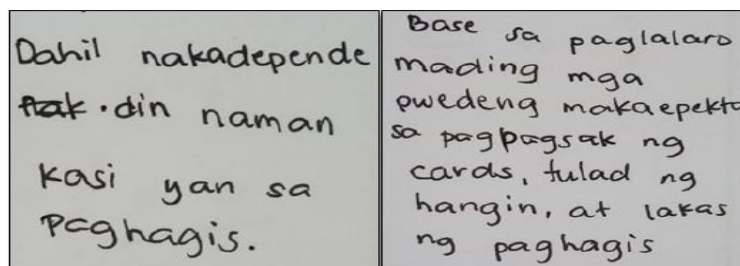 Dahil nakadepende
din naman
kasi yan sa
paghagis.
Base sa paglalaro
mading mga
pwedeng makaepekto
sa pagbagsak ng
cards, tulad ng
hangin, at lakas
ng paghagis